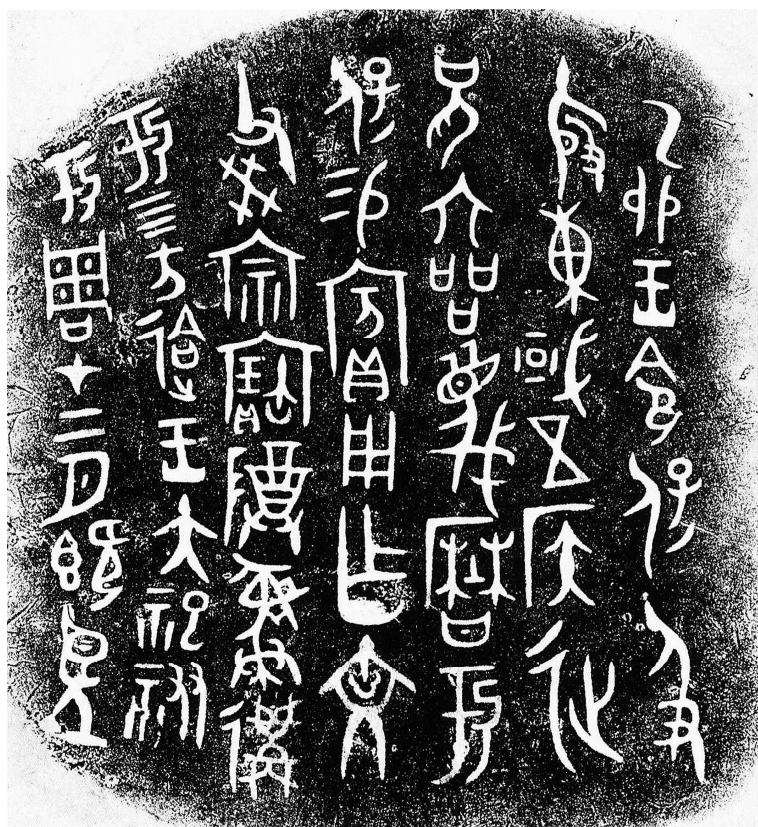 乙卯王令保及
殷東或五侯㢟
兄六品蔑曆于
保易賓用乍文
父癸宗寶𬯚彝遘
于四方䢔王大祀祓
于周才二月既望